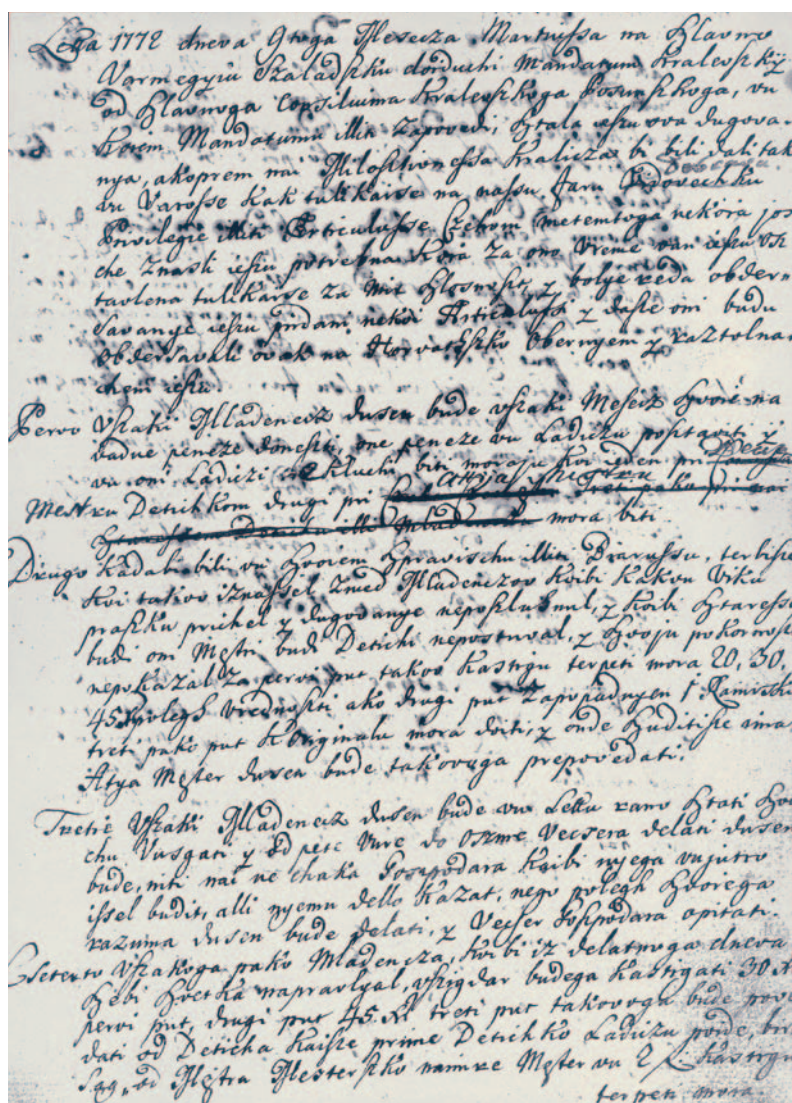 Letta 1772 dneva 9toga Meszecza Martiussa na Glavno
Varmegyiu Szaladszku doiduchi Mandatum Kralevszky
od Glavnoga Consiliuima Kralevszkoga Posunszkoga, vu
koiem Mandatumu illiti Zapovedi, ztala iesu ova dugova-
nya, akoprem nai Milostivnessa Kralicza bi bili dali tak
vu Varosse kak tulikaise na nassu Faru
Privilegie illiti Articulusse Czehom metemtoga nekoia jos
che znasli jeszu potrebna koia za ono vreme van jeszu osz
tavlena tulikaise za mir y bolye reda obder
savanye jeszu pridani nekoi Articulussi y dasse oni budu
obdersavali ovak na Horvatszko obernyem y raztolna
cheni jeszu.
Pervo Vszaki Mladenecz dusen bude vszaki Meszecz szvoie na
vadne peneze doneszti, one peneze vu Ladiczu posztaviti y
vu oni Ladiczi 2 kluchi biti moraju koi jeden pri
Mestru Detichkom drugi pri Attija Mestru
mora biti
Drugo kadabi bili vu szvoiem szpravischu illiti Biarussu, terbisze
koi takov iznassel zmed Mladenczov koibi kakvu viku
prasku prichel y dugovanye neposzluhnul, y koibi sztaresse
budi oni Mestri budi Detichi nepostuval, y szvoju pokornoszt
nepokazal za pervi put takov kastigu terpeti mora 20, 30,
45 polegh vrednoszti ako drugi put zapopadnyen 1
treti pako put k Originalu mora doiti, y onde szuditisze ima
Atya Mester dusen bude takovoga prepovedati.
Tretic Vszaki Mladenecz dusen bude vu Lettu rano sztati szve
chu vusgati y od pete vure do oszme vecsera delati dusen
bude, niti nai ne chaka Goszpodara koibi nyega vujutro
issel budit, alli nyemu dello kazat, nego polegh szvoiega
razuma dusen bude delati, y vecser Goszpodara opitati.
Cseterto vszakoga pako Mladencza, koibi iz delatnoga dneva
szebi szvetka napravlyal, vszigdar budega kastigati 30
pervi put, drugi put 45 treti put takovoga bude pove
dati od Deticha kaisze prime Detichko Ladiczu poide,
od Mestra Mestersko naimre Mester vu 2 kastigu
terpeti mora.